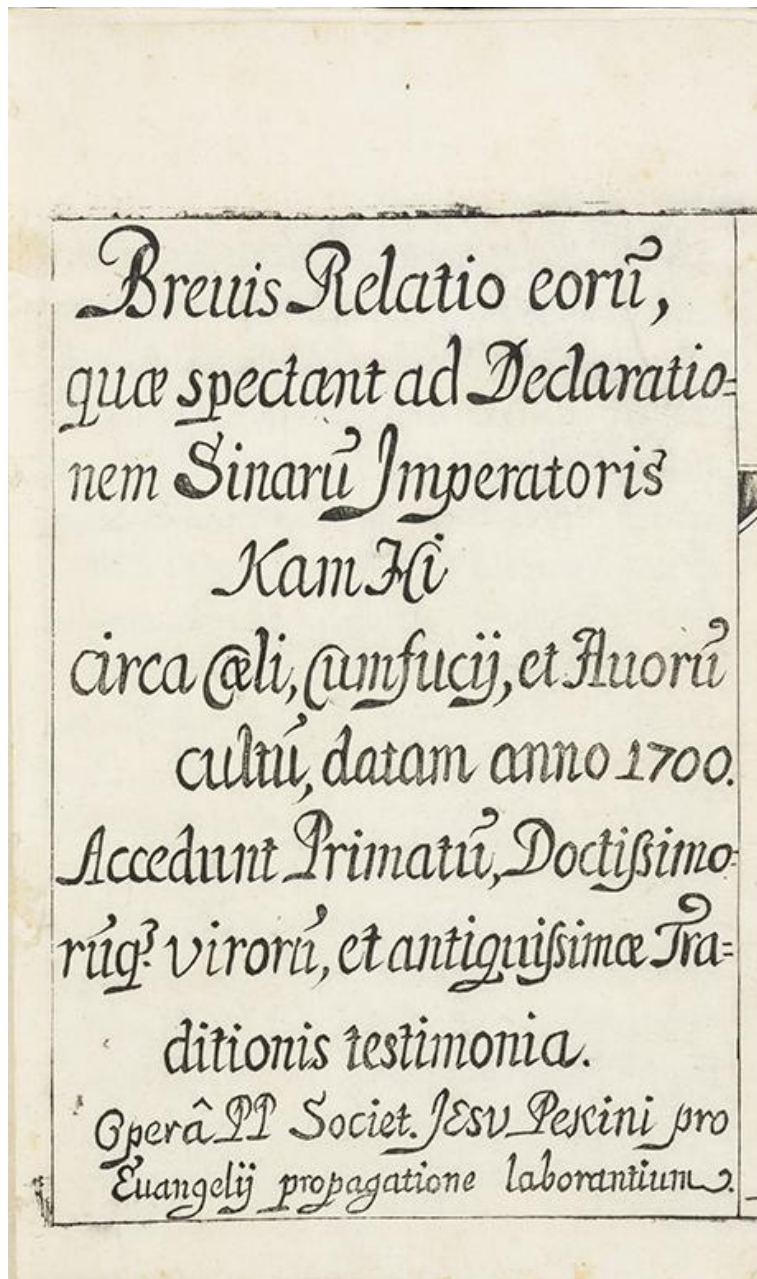 Breuis Relatio eorū,
quæ spectant ad Declaratio=
nem Sinarū Imperatoris
Kam Hi
circa Cæli, Cumfucij, et Auorū
cultū, datam anno 1700.
Accedunt Primatū, Doctißimo=
rūq3 virorū, et antiquißimæ Tra=
ditionis testimonia.
Operâ PP Societ. Jesv Pekini pro
Euangelij propagatione laborantium.